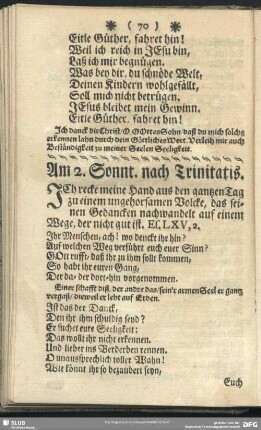 * ( 70 ) *
Eitle Güther, fahret hin!
Weil ich reich in JEsu bin,
Laß ich mir begnügen.
Was bey dir, du schnöde Welt,
Deinen Kindern wohlgefällt,
Soll mich nicht betrügen.
JEsus bleibet mein Gewinn.
Eitle Güther, fahret hin!
Ich danck dir Christ O GOttes Sohn daß du mich solchs
erkennen lahn durch dein Göttliches Wort. Verleih mir auch
Beständigkeit zu meiner Seelen Seeligkeit.
Am 2. Sonnt. nach Trinitatis.
ICh recke meine Hand aus den gantzen Tag
zu einem ungehorsamen Volcke, das sei-
nen Gedancken nachwandelt auf einem
Wege, der nicht gut ist. Es. LXV, 2,
Ihr Menschen, ach! wo denckt ihr hin?
Auf welchen Weg verführt euch euer Sinn?
GOtt rufft, daß ihr zu ihm sollt kommen,
So habt ihr euren Gang,
Der da, der dort hin vorgenommen.
Einer schafft diß, der andre das, sein'r armen Seel er gantz
vergaß, dieweil er lebt auf Erden.
Ist das der Danck,
Den ihr ihm schuldig seyd?
Er suchet eure Seeligkeit:
Das wollt ihr nicht erkennen.
Und lieber ins Verderben rennen.
O unaussprechlich toller Wahn!
Wie könnt ihr so bezaubert seyn,
Euch
SLUB
DFG